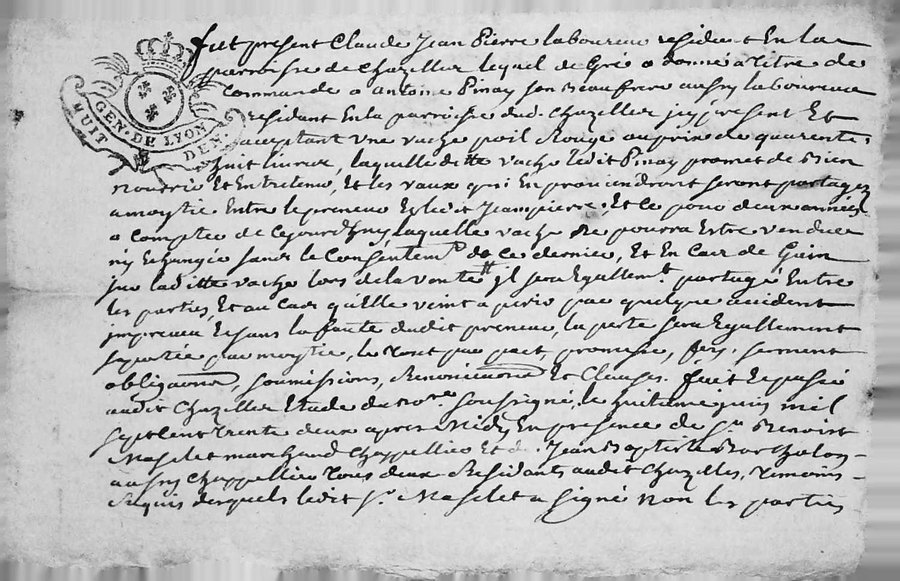 GEN. DE LYON
HUIT DEN.
fut present Claude Jean Pierre laboureur residant En la
parroisse de Chazelles lequel de Gré a donné a titre de
Commande a antoine Pinay son Beaufrere aussy laboureur
residant En la parroisse dud. Chazelles jcy present Et
acceptant une vache poil Rouge au prix de quarente
huit livres, laquelle ditte vache ledit Pinay promet de bien
nourrir Et Entretenir, Et les vaux qui En proviendront seront partagez
a moytie Entre le preneur Et ledit Jeanpierre, Et ce pour deux années
a compter de Cejourdhuy laquelle vache ne pourra Estre vendue
ny Echangée sans le Consentemt. de ce dernier, Et En Cas de Gain
sur laditte vache lors de la vente jl sera Egallemt. partagé Entre
les parties, Et au Cas qu'Elle veint a perir par quelque accident
jmpreveu Et sans la faute dudit preneur, la perte sera Egallement
suportée par moytie, le tout par pact, promesse, serment
obligaons, soumissions, Renonciaons Et Clauses. fait Et passé
audit Chazelles Etude du nore. soussigné, le huitieme juin mil
sept Cent trente deux apres Midy En presence de Sr. Benoist
Maselet marchand Chappellier Et de Jean Baptiste Bartholon
aussy Chappellier tous deux Residants audit Chazelles, temoins
Requis desquels ledit Sr. Maselet a signé non les parties